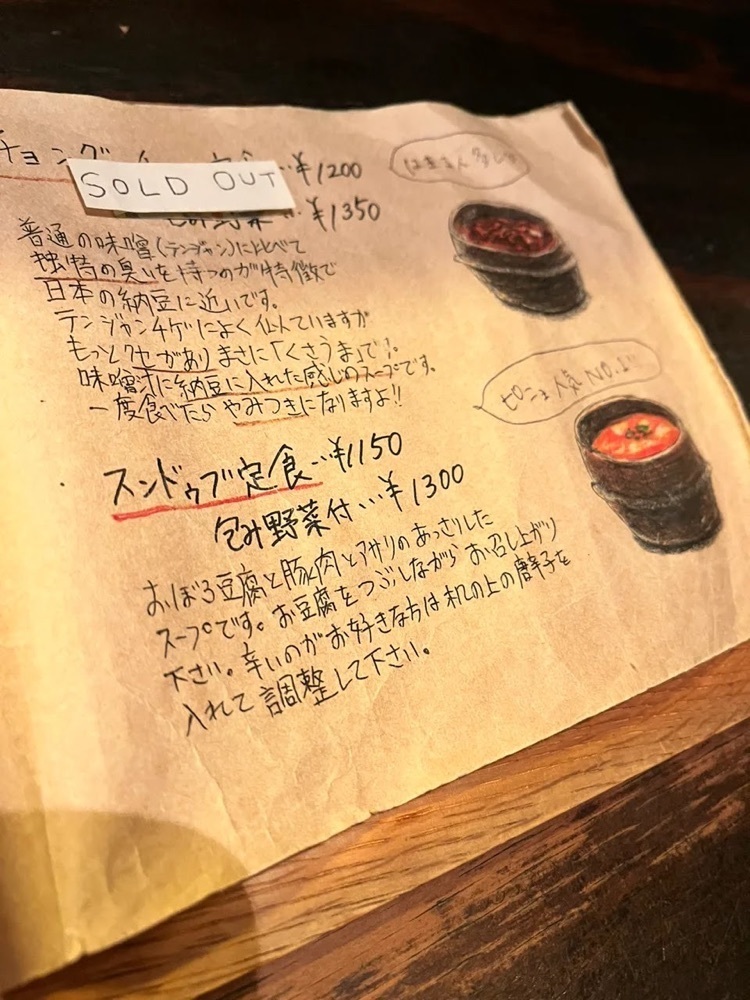 チョング …¥1200
SOLD OUT
…¥1350
普通の味噌(テンジャン)に比べて
独特の臭いを持つのが特徴で
日本の納豆に近いです。
テンジャンチゲによく似ていますが
もっとクセがありまさに「くさうま」です。
味噌汁に納豆に入れた感じのスープです。
一度食べたらやみつきになりますよ!!
スンドゥブ定食…¥1150
包み野菜付…¥1300
おぼろ豆腐と豚肉とアサリのあっさりした
スープです。お豆腐をつぶしながらお召し上がり
下さい。辛いのがお好きな方は机の上の唐辛子を
入れて調整して下さい。
人気NO.1